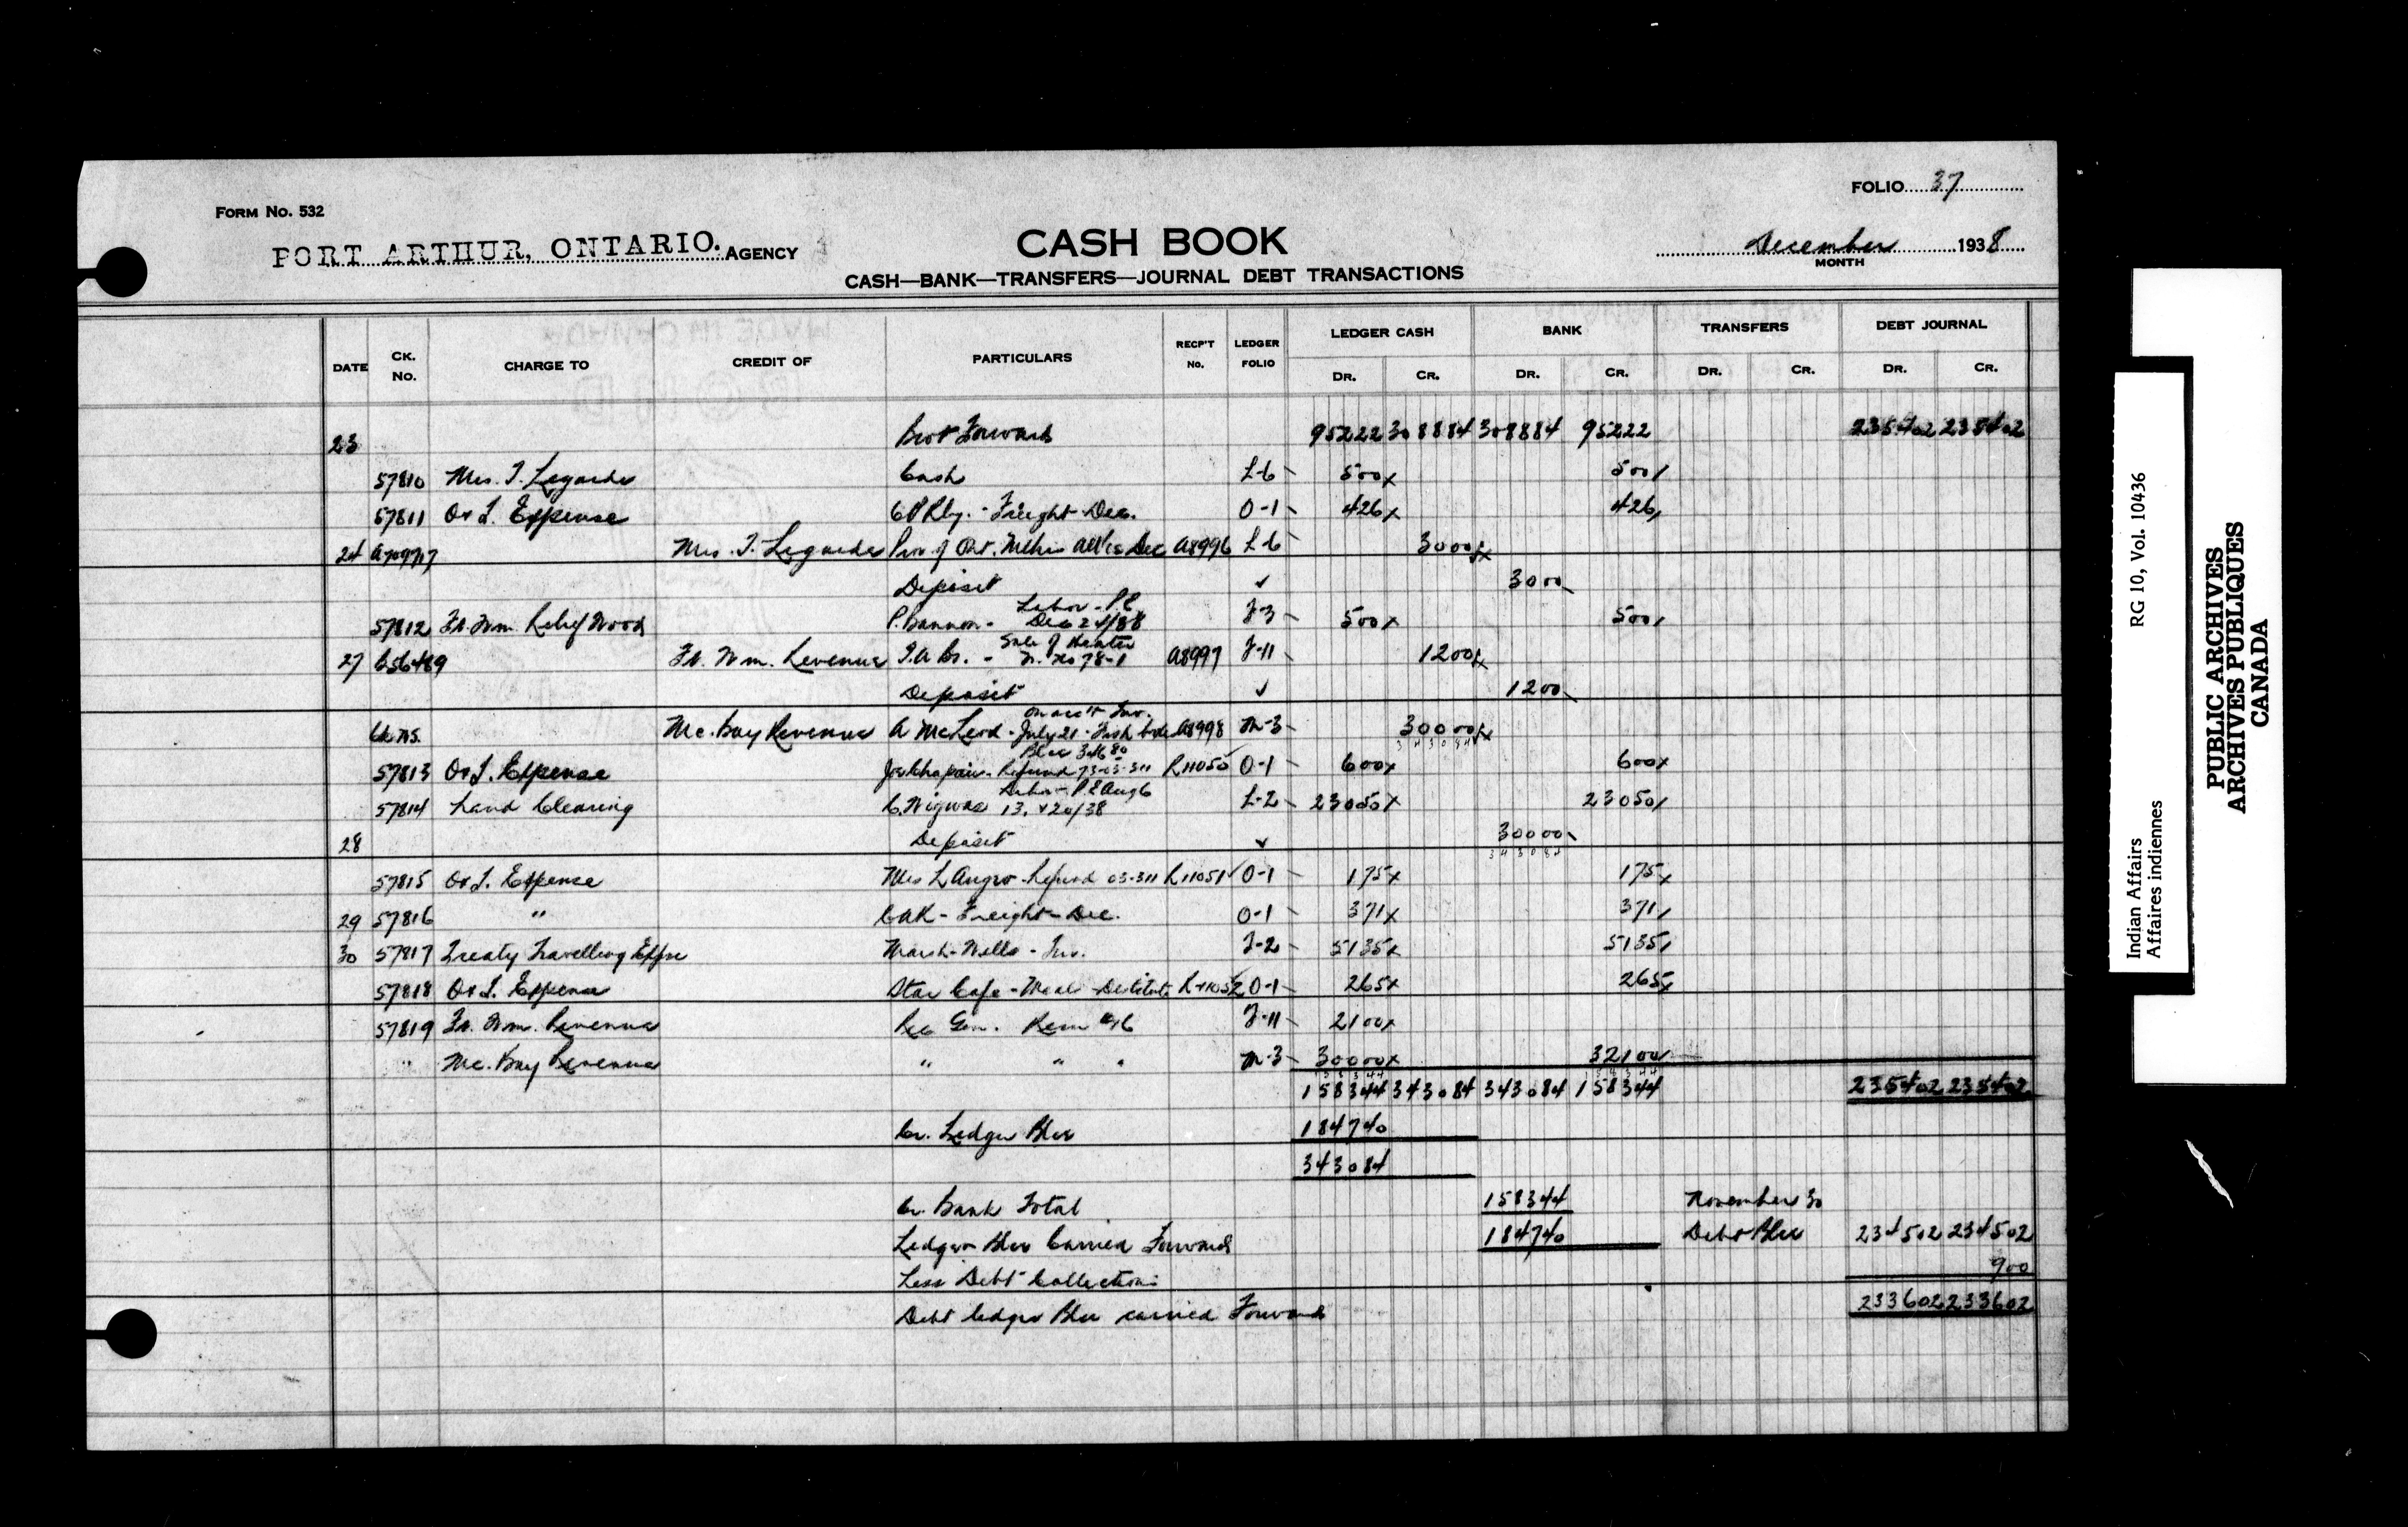 FOLIO 37
FORM No. 532
PORT ARTHUR, ONTARIO. AGENCY
CASH BOOK
December 1938
MONTH
CASH—BANK—TRANSFERS—JOURNAL DEBT TRANSACTIONS
DATE CK. No. CHARGE TO CREDIT OF PARTICULARS RECP'T No. LEDGER FOLIO LEDGER CASH DR. CR. BANK DR. CR. TRANSFERS DR. CR. DEBT JOURNAL DR. CR.
23 Brot Forward 95222 308884 308884 95222 235402 235402
57810 Mrs. J. Legarde Cash L-6 500x 500
57811 O+L. Expense CPRly. - Freight Dec. O-1 426x 426
24 A70977 Mrs. J. Legarde Prov of Ont. Mthrs All'ce Dec A8996 L-6 3000
Deposit ✓ 3000
57812 Ft. Wm. Relief Wood P. Bannon - Labor - P.L. Dec 24/38 J-3 500x 500
27 C56489 Ft. Wm. Revenue I.A.Br. - Sale of Heater A8997 J-11 1200
Deposit ✓ 1200
Mc. Bay Revenue A McLeod - on acc't Inv. July 21 - A8998 M-3 30000
57813 O+L. Expense Refund R11050 O-1 600x 600x
57814 Land Clearing Labor - P.L. Aug 6 13. + 20/38 L-2 23050x 23050
28 Deposit ✓ 30000
57815 O+L. Expense Mrs L Angro - Refund 03-311 R11051 O-1 175x 175x
29 57816 " CNR - Freight - Dec. O-1 371x 371
30 57817 Treaty Travelling Expse Marsh-Wells - Inv. J-2 5135x 5135
57818 O+L. Expense Star Cafe - Meals - Destitute R-11052 O-1 265x 265x
57819 Ft. Wm. Revenue Rec Gen. Rem #16 J-11 2100x
" Mc. Bay Revenue " " " M-3 30000x 32100
158344 343084 343084 158344 235402 235402
Cr. Ledger Blce 184740
343084
Cr. Bank Total 158344 November 30
Ledger Blce Carried Forward 184740 Debt Blce 234502 234502
Less Debt Collections 900
Debt ledger Blce carried Forward 233602 233602
Indian Affairs RG 10, Vol. 10436
Affaires indiennes
PUBLIC ARCHIVES
ARCHIVES PUBLIQUES
CANADA